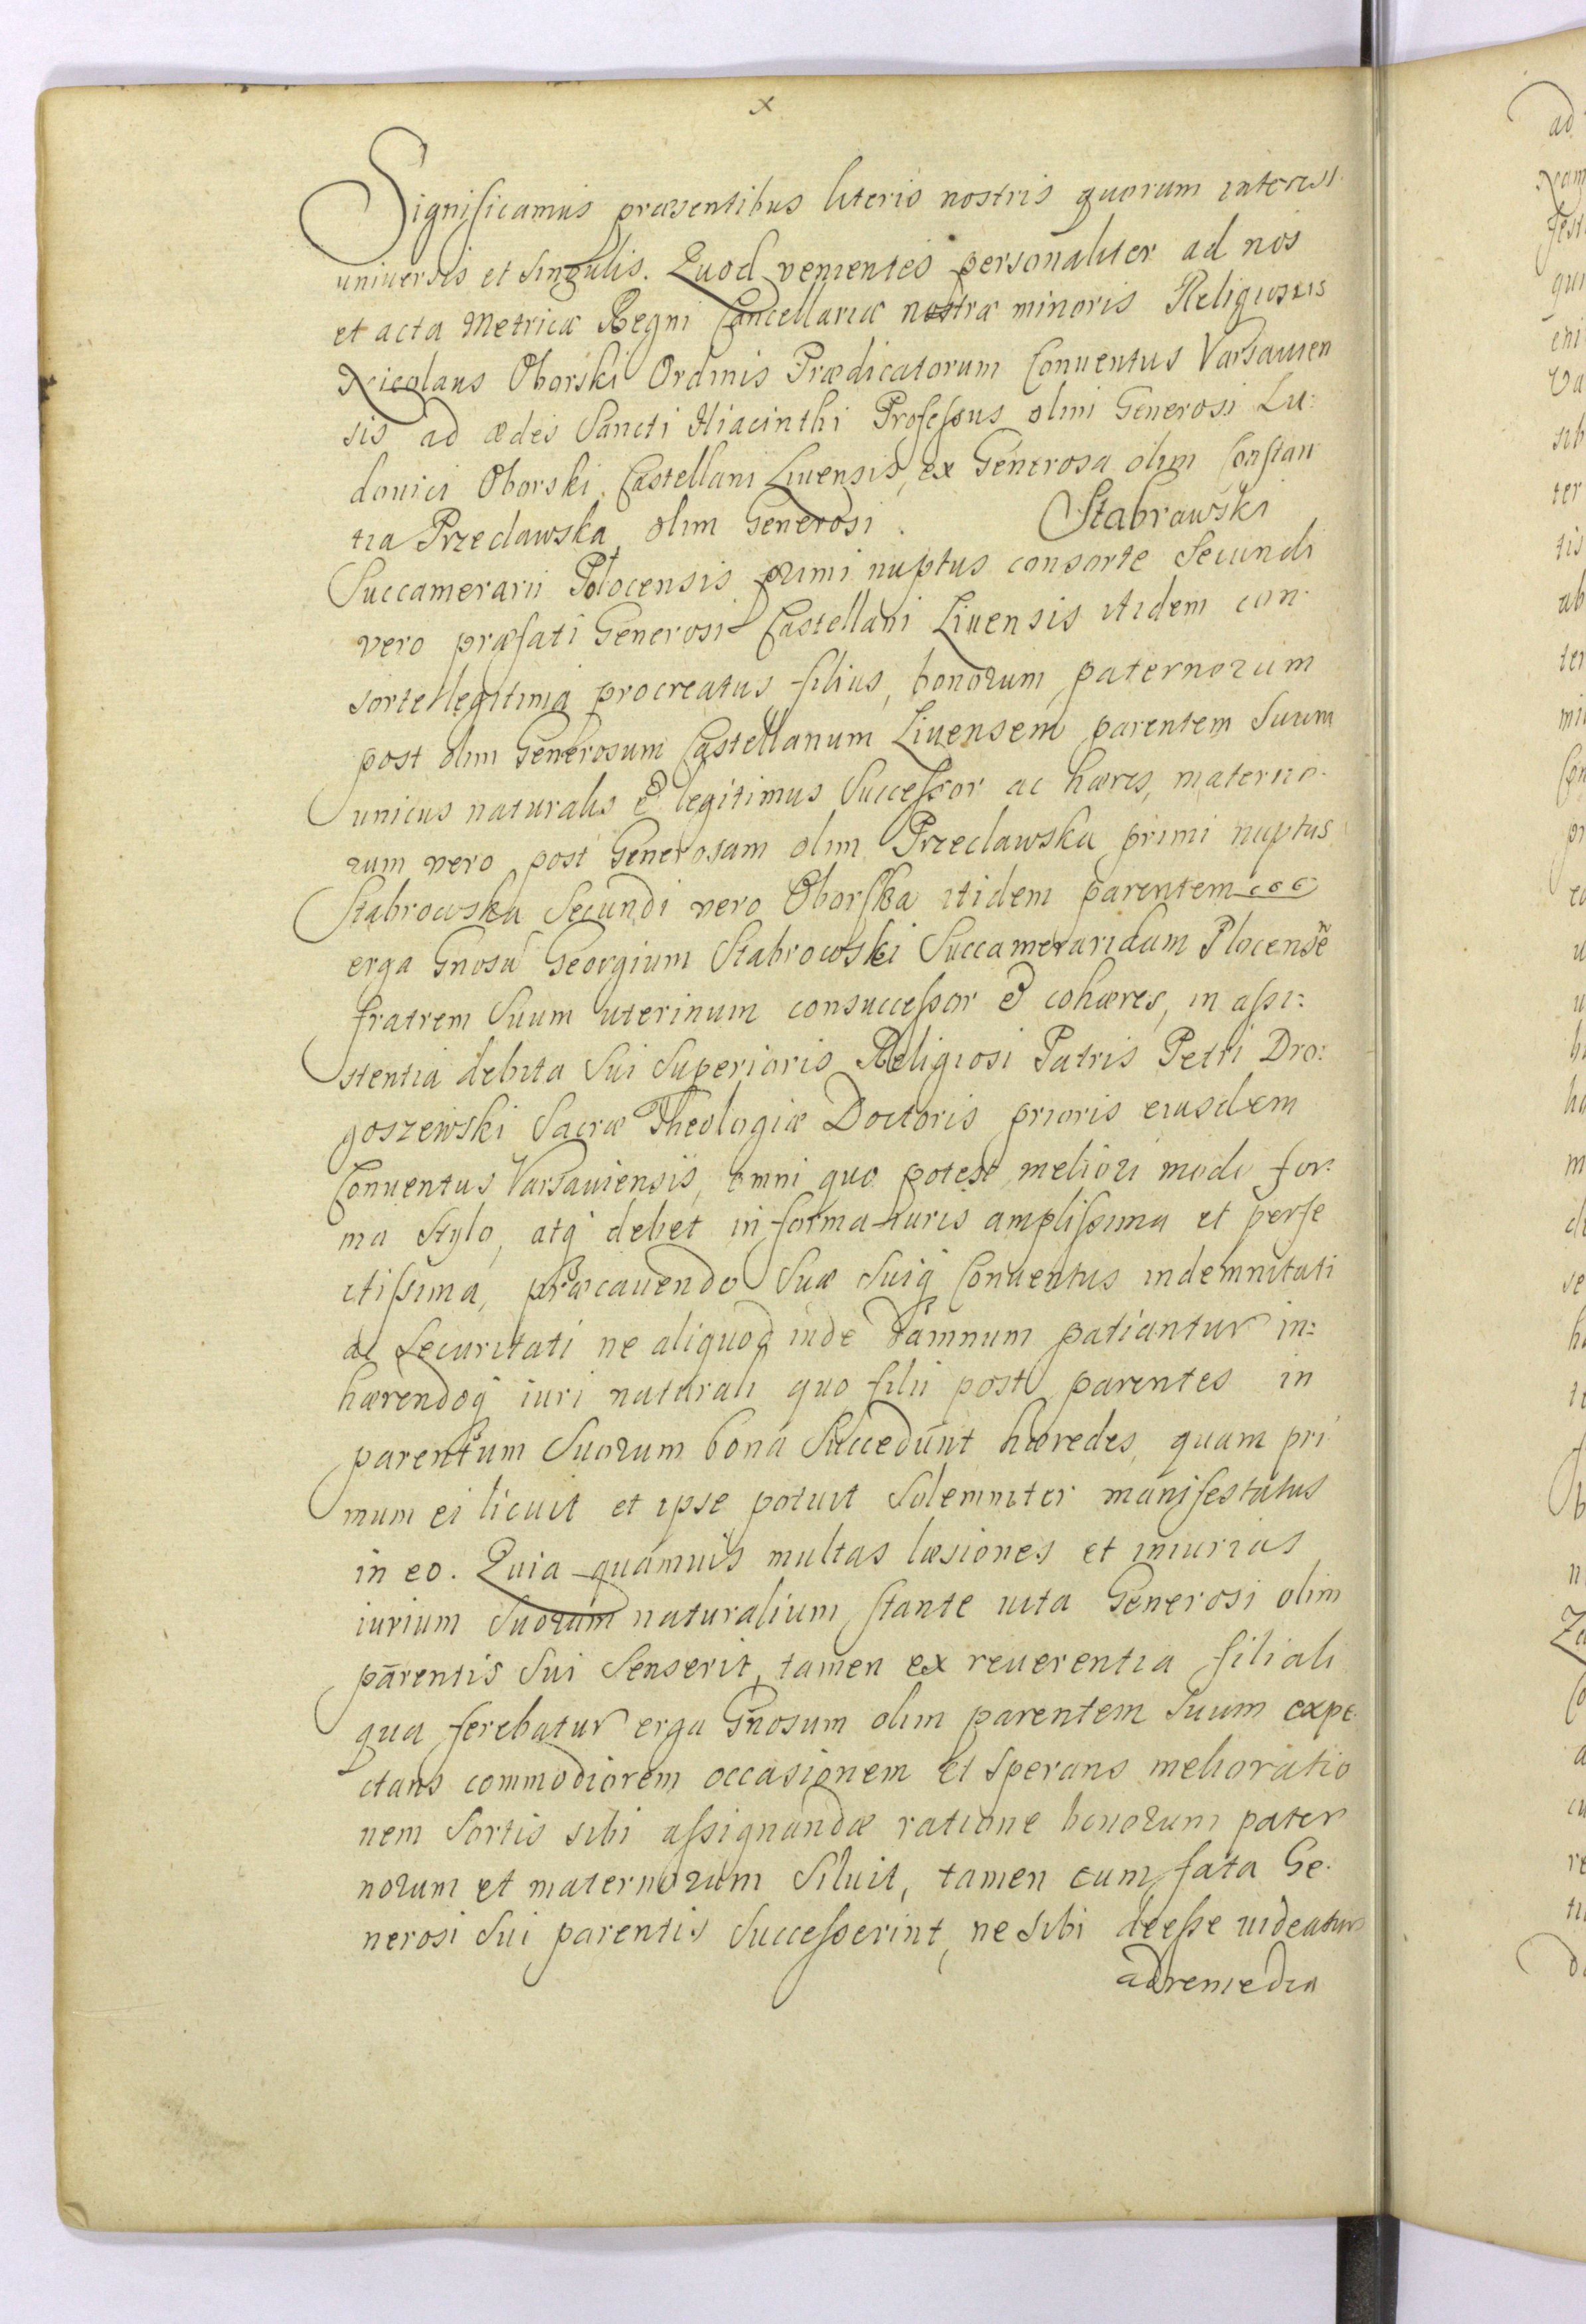 x
Significamus præsentibus literis nostris quorum interest
universis et singulis. Quod venientes personaliter ad nos
et acta Metricæ Regni Cancellariæ nostræ minoris Religiosus
Nicolaus Oborski Ordinis Prædicatorum Conventus Varsavien
sis ad ædes Sancti Hiacinthi Professus olim Generosi Lu:
dovici Oborski Castellani Livensis, ex Generosa olim Constan
tia Przecławska olim Generosi . Stabrawski
Succamerarii Plocensis primi nuptus consorte Secundi
vero præfati Generosi Castellani Livensis itidem con
sorte legitima procreatus filius, bonorum paternorum
post olim Generosum Castellanum Livensem parentem Suum
unicus naturalis & legitimus Successor ac hæres, materno
rum vero post Generosam olim Przecławska primi nuptus
Stabrowska Secundi vero Oborska itidem parentem
erga Gnosũ Georgium Stabrowski Succameraridam Plocensẽ
fratrem Suum uterinum consuccessor & cohæres, in assi:
stentia debita Sui Superioris Religiosi Patris Petri Dro:
goszewski Sacræ Theologiæ Doctoris prioris eiusdem
Conventus Varsaviensis, omni quo potest meliori modo for:
ma Stylo, atq debet in forma iuris amplissima et perfe
ctissima, præcavendo Suæ Suiq Conventus indemnitati
ac Securitati ne aliquod inde damnum patiantur in:
hærendoq iuri naturali quo filii post parentes in
parentum Suorum bona Succedunt hæredes, quam pri
mum ei licuit et ipse potuit Solemniter manifestatus
in eo. Quia quamvis multas læsiones et iniurias
iurium Suorum naturalium stante vita Generosi olim
parentis Sui Senserit, tamen ex reverentia filiali
qua ferebatur erga Gnosum olim parentem Suum expe
ctans commodiorem occasionem et Sperans melioratio
nem Sortis sibi assignandæ ratione bonorum pater
norum et maternorum Siluit, tamen cum fata Ge
nerosi Sui parentis Successerint, ne Sibi deesse videatur
ad remedia